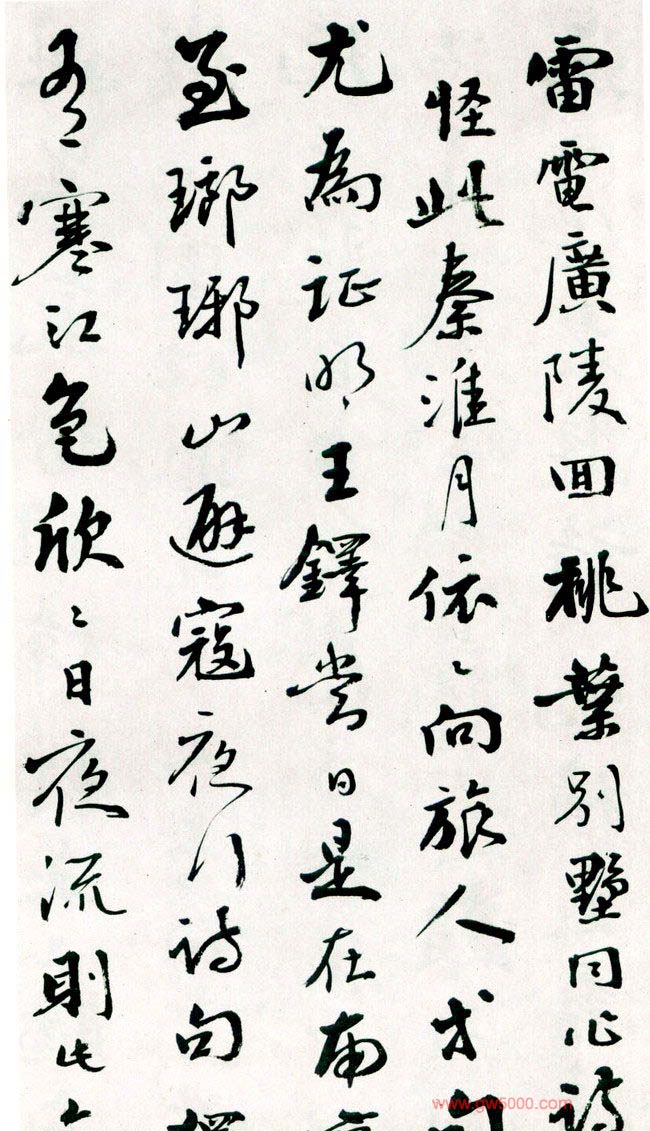 雷電廣陵回桃葉別墅同作詩
怪此秦淮月依〻向旅人才
尤為証明王鐸當日是在南京
至瑯琊山避寇夜行詩句
有寒江色欣〻日夜流則此
www.gw5000.com